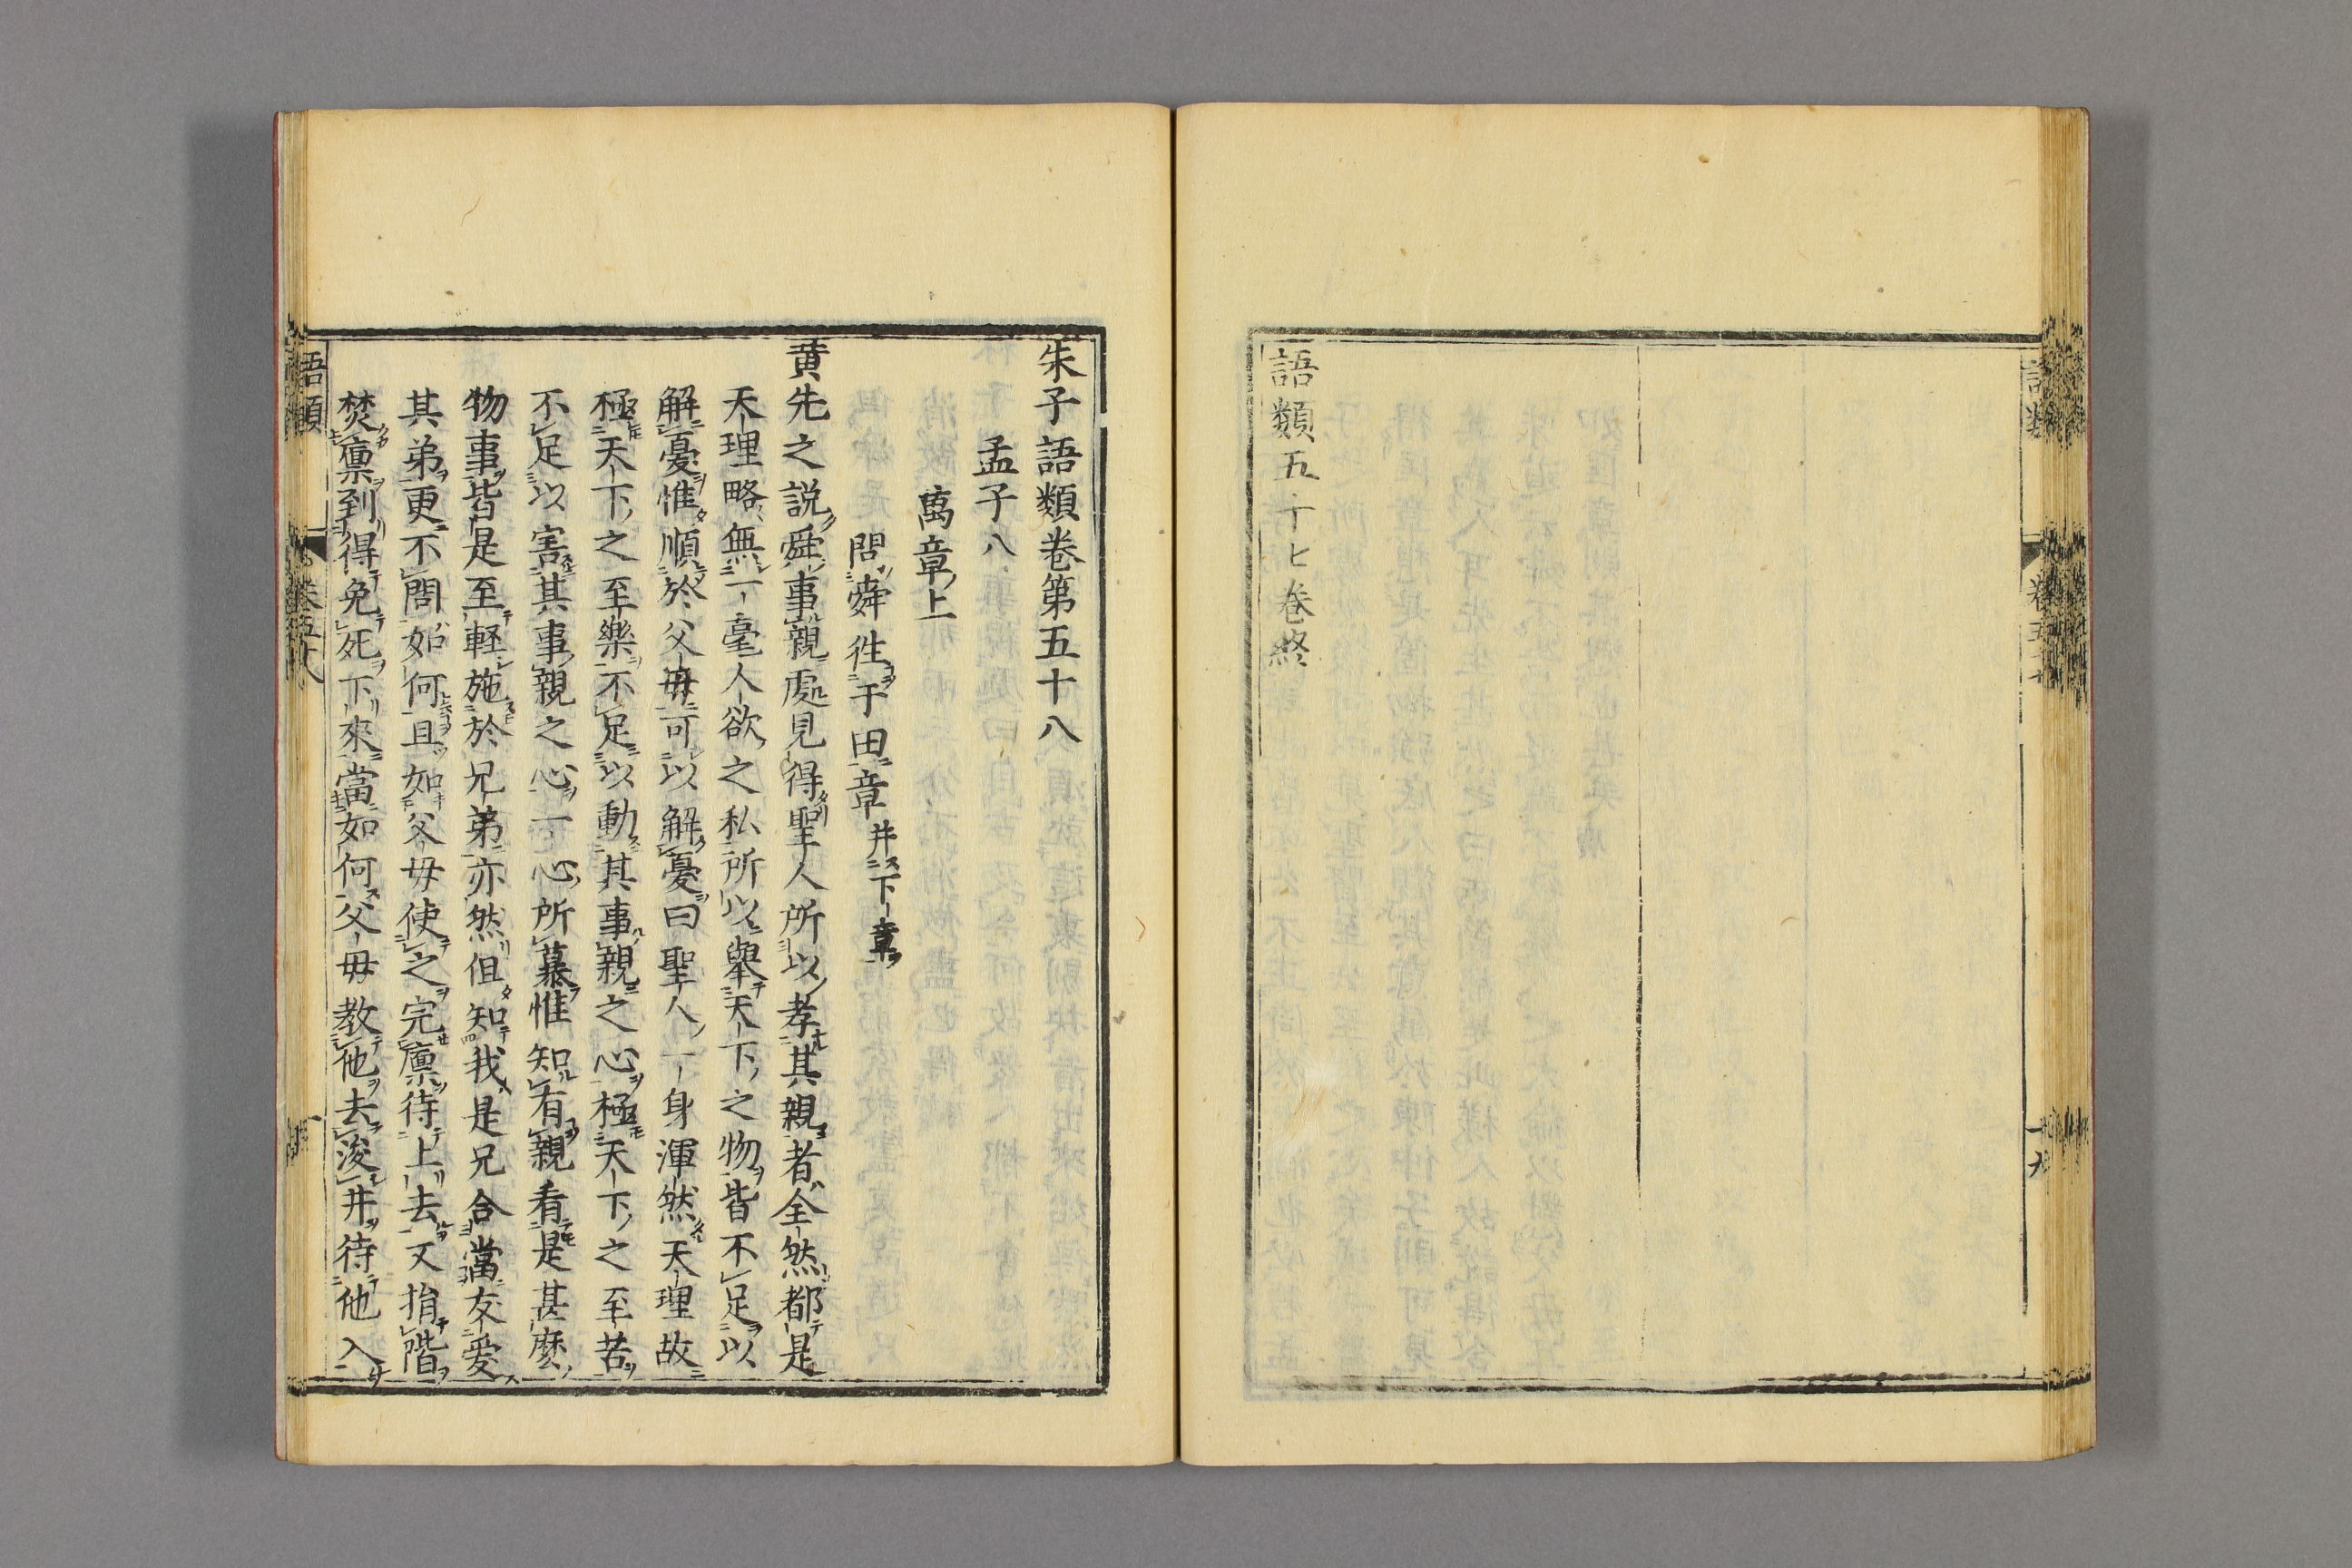 語類五十七卷終
朱子語類卷第五十八
孟子八
萬章上
問舜徃于田章并下章
黄先之説舜事親處見得聖人所以孝其親者全然都是
天理略無一毫人欲之私所以舉天下之物皆不足以
解憂惟順於父毋可以解憂曰聖人一身渾然天理故
極天下之至樂不足以動其事親之心極天下之至苦
不足以害其事親之心一心所慕惟知有親看是甚麽
物事皆是至軽施於兄弟亦然但知我是兄合當友愛
其弟更不問如何且如父毋使之完廪待上去又捐階
焚廪到得免死下來當如何父毋教他去浚井待他入
語類
卷五十八